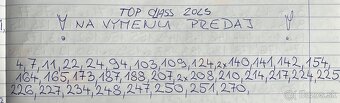 TOP CLASS 2025
! NA VÝMENU PREDAJ !
4, 7, 11, 22, 24, 94, 103, 109, 124, 2x 140, 141, 142, 154,
164, 165, 173, 187, 188, 207, 2x 208, 210, 214, 217, 224, 225
226, 227, 234, 248, 247, 250, 251, 270,